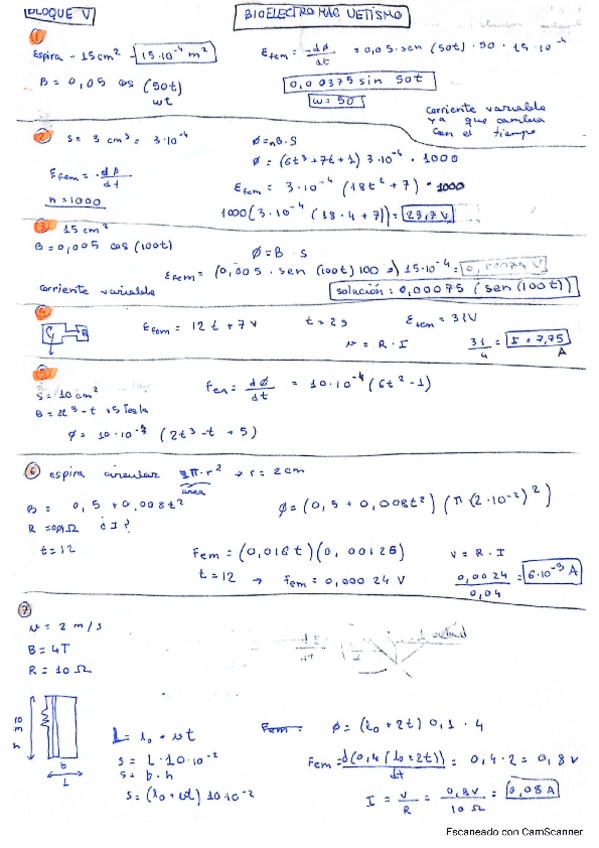 BLOQUE V
BIOELECTROMAGNETISMO
1
Espira - 15cm² → 15·10⁻⁴ m²
εfem = -dφ/dt = 0,05·sen (50t)·50·15·10⁻⁴
B = 0,05 cos (50t)
wt
0,00375 sin 50t
w = 50
corriente variable
ya que cambia
con el tiempo
2
S = 3 cm² = 3·10⁻⁴
φ = nB·S
φ = (6t³+7t+1) 3·10⁻⁴ · 1000
εfem = -dφ/dt
εfem = 3·10⁻⁴ (18t²+7) · 1000
n = 1000
1000(3·10⁻⁴ (18·4+7)) = 23,7 V
3
15 cm²
B = 0,005 cos (100t)
φ = B · S
εfem = (0,005 · sen (100t) 100) 15·10⁻⁴ = 0,00075 V
corriente variable
solución: 0,00075 (sen(100t))
4
εfem = 12t + 7V
t = 2s
εfem = 31V
v = R · I
31/4 = I = 7,75 A
5
S = 10cm²
Fem = dφ/dt = 10·10⁻⁴ (6t²-1)
B = 2t³-t+5 Tesla
φ = 10·10⁻⁴ (2t³-t+5)
6 espira circular π·r² → r = 2cm
area
B = 0,5 + 0,008t²
φ = (0,5 + 0,008t²) (π(2·10⁻²)²)
R = 0,04Ω ¿I?
t = 12
Fem = (0,016t)(0,00126)
V = R · I
t = 12 → fem = 0,00024 V
0,0024/0,04 = 6·10⁻³ A
7
v = 2 m/s
B = 4T
R = 10Ω
10 m
h
b
L
L = l₀ + vt
Fem =
φ = (l₀+2t) 0,1 · 4
S = L · 10·10⁻²
S = b · h
Fem = d(0,4(l₀+2t))/dt = 0,4·2 = 0,8 V
S = (l₀+vt) 10·10⁻²
I = V/R = 0,8V/10Ω = 0,08 A
Escaneado con CamScanner